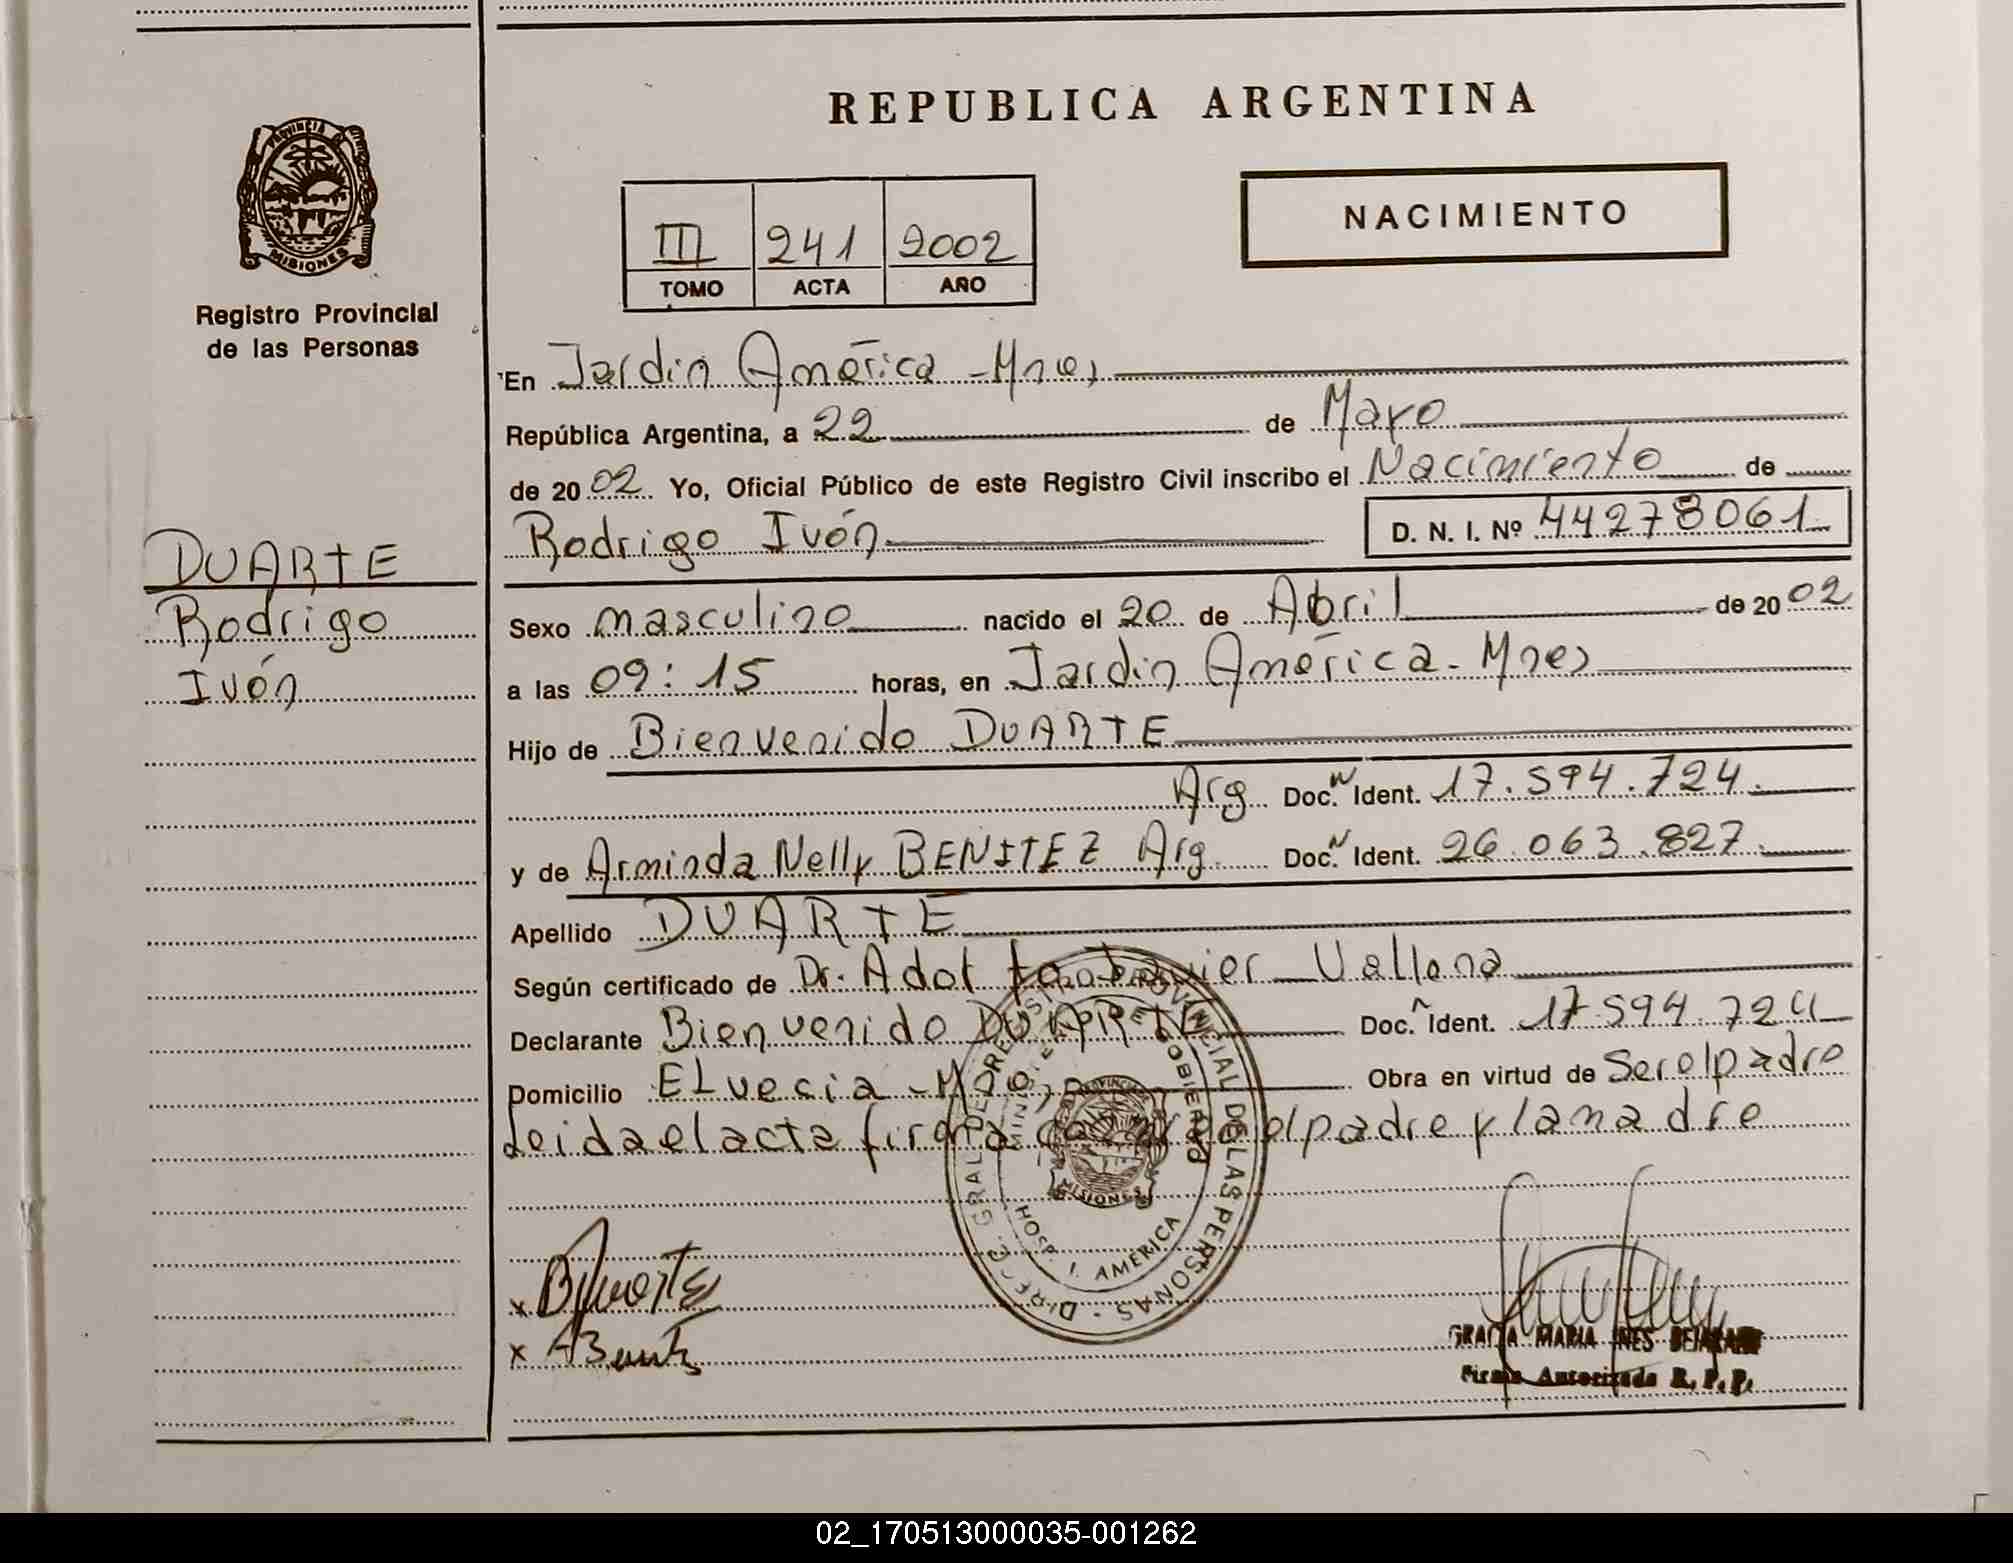 REPUBLICA ARGENTINA
PROVINCIA DE
MISIONES
Registro Provincial
de las Personas
III 241 2002
TOMO ACTA AÑO
NACIMIENTO
En Jardin América - Mnes
República Argentina, a 22 de Mayo
de 2002 Yo, Oficial Público de este Registro Civil inscribo el Nacimiento de
Rodrigo Ivón D. N. I. Nº 44278061
DUARTE
Rodrigo
Ivón
Sexo masculino nacido el 20 de Abril de 2002
a las 09:15 horas, en Jardin América - Mnes
Hijo de Bienvenido DUARTE
Arg Doc. N Ident. 17.594.724
y de Arminda Nelly BENITEZ Arg. Doc. N Ident. 26.063.827
Apellido DUARTE
Según certificado de Dr. Adol Vallena
Declarante Bienvenido DUARTE Doc. Ident. 17594.724
Domicilio ELvecia - Mnes Obra en virtud de Ser el padre
Leida el acta firma el padre y la madre
DIRECC. GRAL. DE REGISTRO PROVINCIAL DE LAS PERSONAS
MINISTE GOBIERNO
MISIONES
HOSP. J. AMERICA
x BDuarte
x ABenitez
GRACIA MARIA INES
Firma Autorizada R. P. P.
02_170513000035-001262